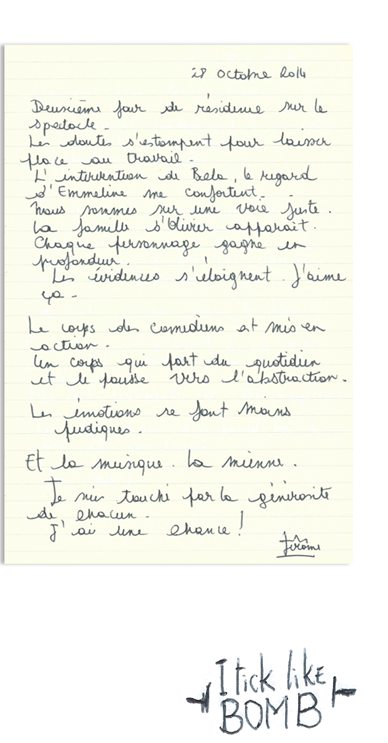 28 Octobre 2014
Deuxième jour de résidence sur le
spectacle.
Les doutes s'estompent pour laisser
place au travail.
L'intervention de Bela, le regard
d'Emmeline me confortent.
Nous sommes sur une voie juste.
La famille d'Olivier apparait.
Chaque personnage gagne en
profondeur.
Les évidences s'éloignent. J'aime
ça.
Le corps des comédiens est mis en
action.
Un corps qui part du quotidien
et le pousse vers l'abstraction.
Les émotions se font moins
pudiques.
Et la musique. La mienne.
Je suis touché par la générosité
de chacun.
J'ai une chance !
Jérôme
I tick like
BOMB